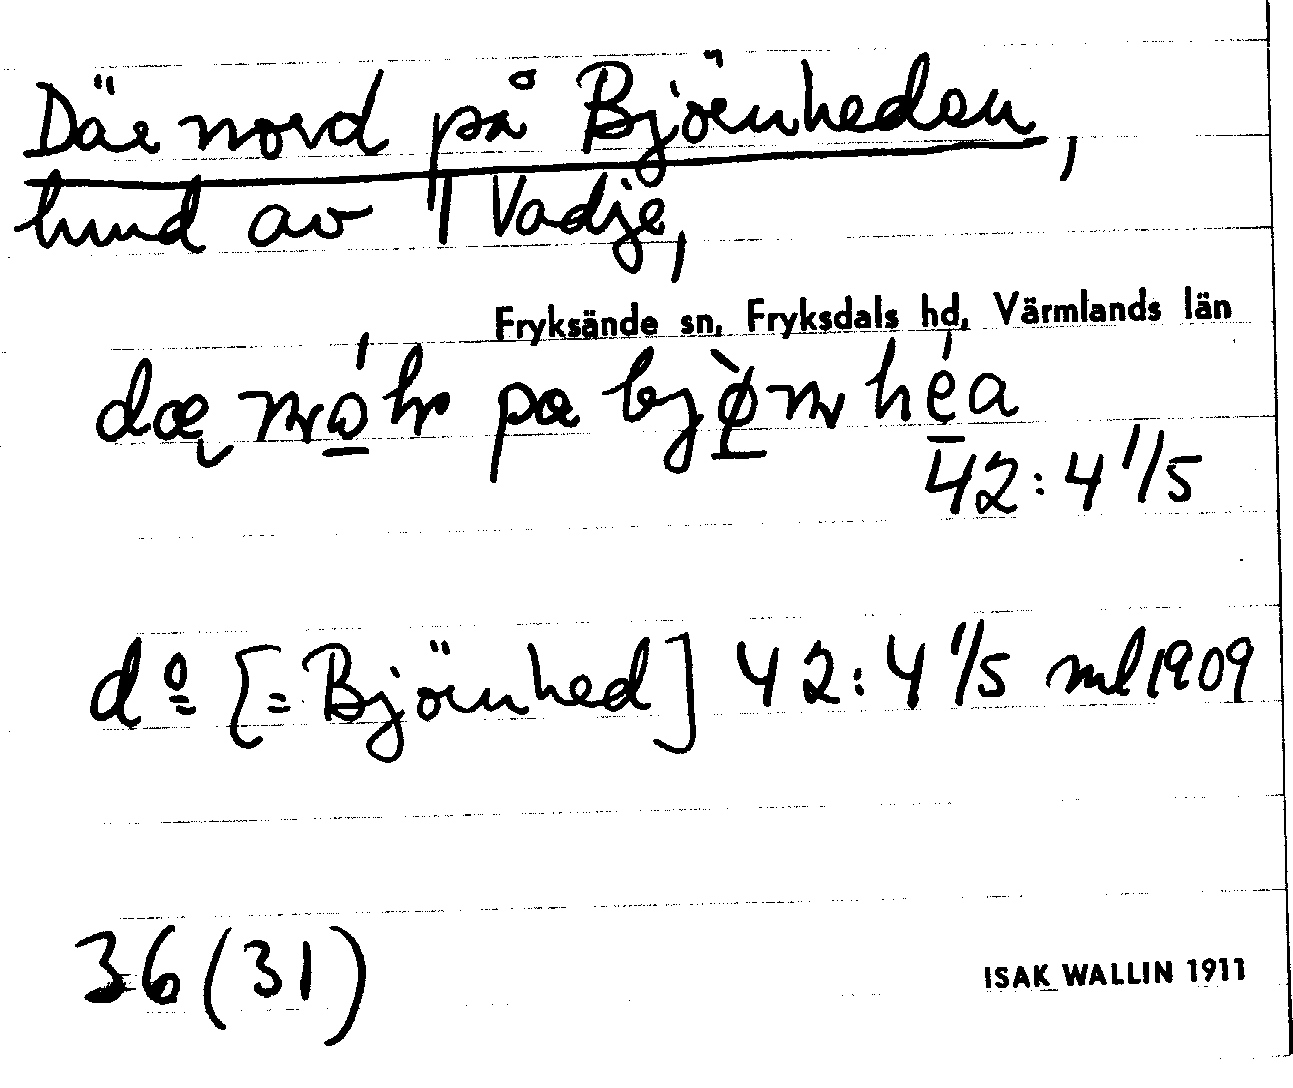 Där nord på Björnheden,
hund av 1 Vadje,
Fryksände sn, Fryksdals hd, Värmlands län
pa
42:4 1/5
dº [= Björnhed] 42:4 1/5 ml 1909
36 (31)
ISAK WALLIN 1911